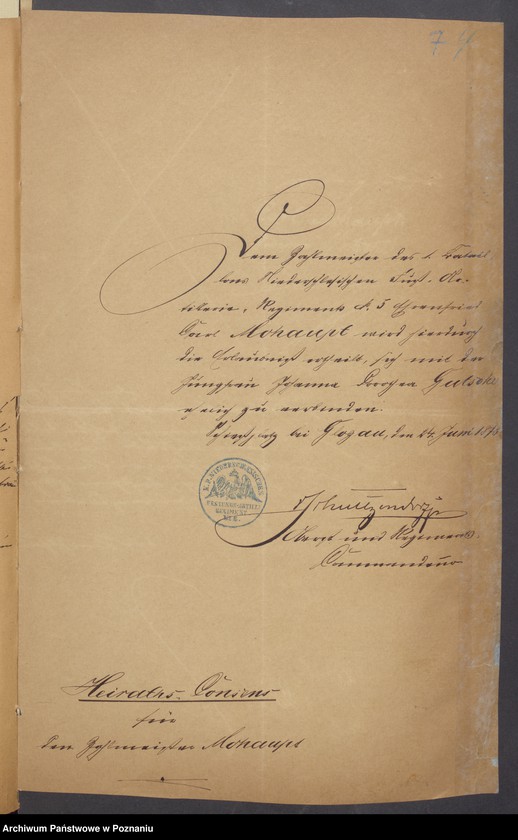 7 4
Dem Zahlmeister des 1. Batail-
lons Niederschlesischen Fuß-Ar-
tillerie-Regiments № 5 Ehrenfried
Carl Mohaupt wird hierdurch
die Erlaubniß ertheilt, sich mit der
Jungfrau Johanna Dorothea Gutsche
ehelich zu verbinden.
Schießplatz bei Glogau, den 24. Juni 187
K. P. NIEDERSCHLESISCHES
FESTUNGS-ARTILL.
REGIMENT
№ 5.
Oberst und Regiments-
Commandeur
Heiraths-Consens
für
den Zahlmeister Mohaupt
Archiwum Państwowe w Poznaniu